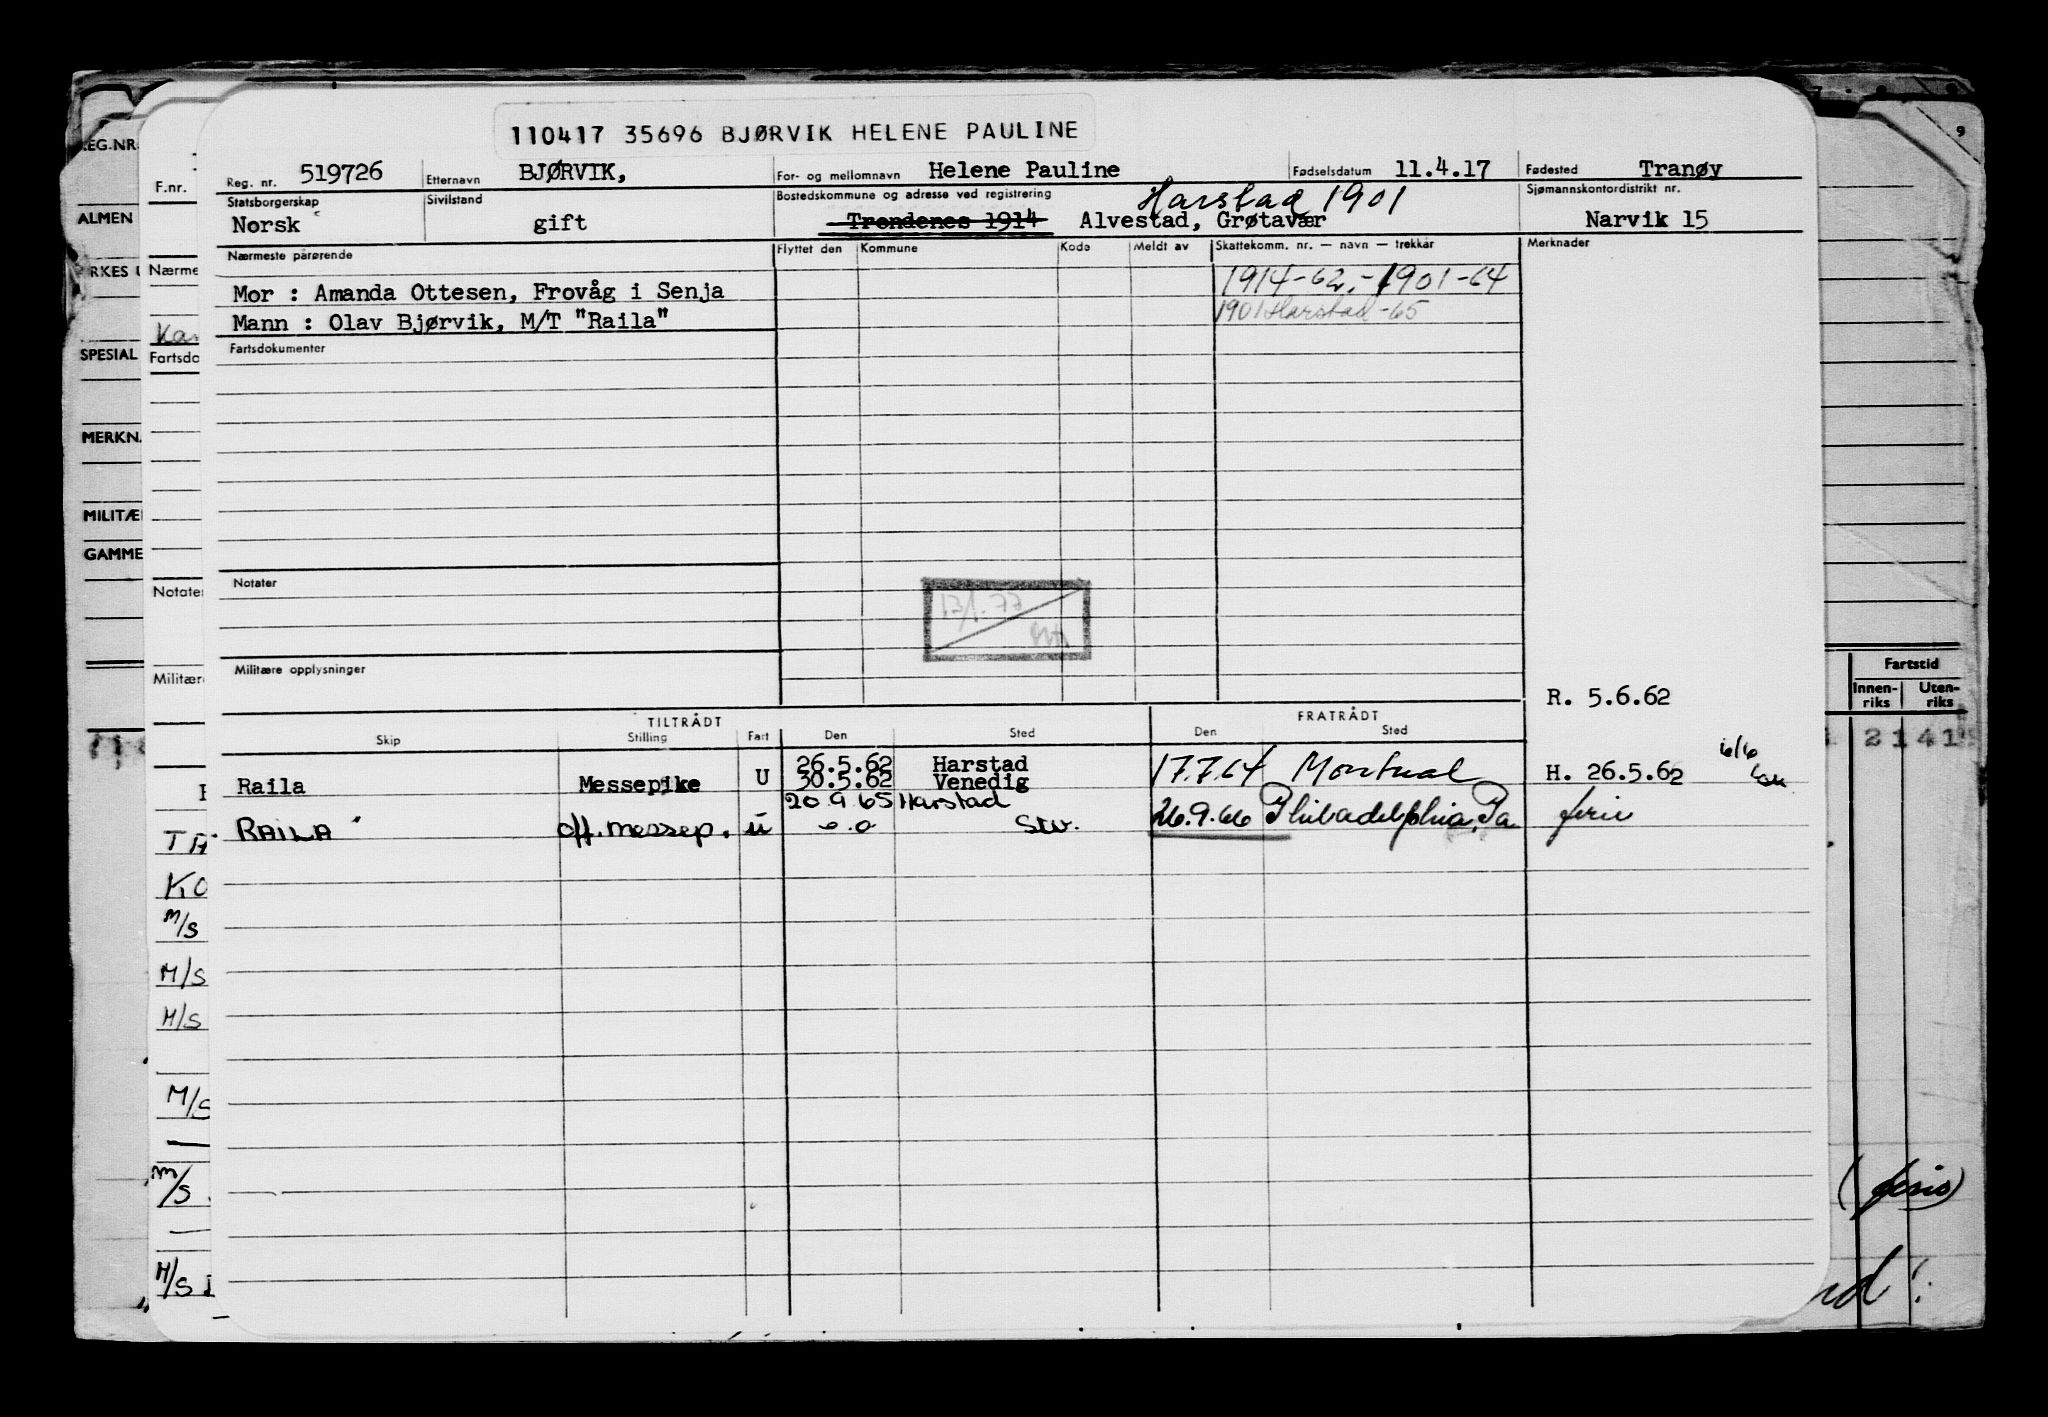 110417 35696 BJØRVIK HELENE PAULINE
Reg. nr. 519726 Etternavn BJØRVIK, For- og mellomnavn Helene Pauline Fødselsdatum 11.4.17 Fødested Tranøy
Statsborgerskap Sivilstand Bostedskommune og adresse ved registrering Harstad 1901 Sjømannskontordistrikt nr.
Norsk gift Trondenes 1914 Alvestad, Grøtavær Narvik 15
Nærmeste pårørende Flyttet den Kommune Kode Meldt av Skattekomm. nr. — navn — trekkår Merknader
1914-62.-1901-64
Mor : Amanda Ottesen, Frovåg i Senja
1901 Harstad -65
Mann : Olav Bjørvik, M/T "Raila"
Fartsdokumenter
Notater
13/1.77
Militære opplysninger
R. 5.6.62
TILTRÅDT FRATRÅDT
Skip Stilling Fart Den Sted Den Sted
26.5.62 Harstad
Raila Messepike U 30.5.62 Venedig 17.7.64 Montreal H. 26.5.62 6/6
20.9.65 Harstad
RAILA off. messep. u o.o Stv. 26.9.66 Philadelphia, Pa ferie
REG.NR.
ALMEN
SPESIAL
MERKN
MILITÆ
GAMME
F.nr.
Nærme
Kar
Fartsdo
Notater
Militær
TA
KO
M/S
M/S
M/S
M/S
M/S
M/S
9
Fartstid
Innen-riks Uten-riks
21 41
(ferie)